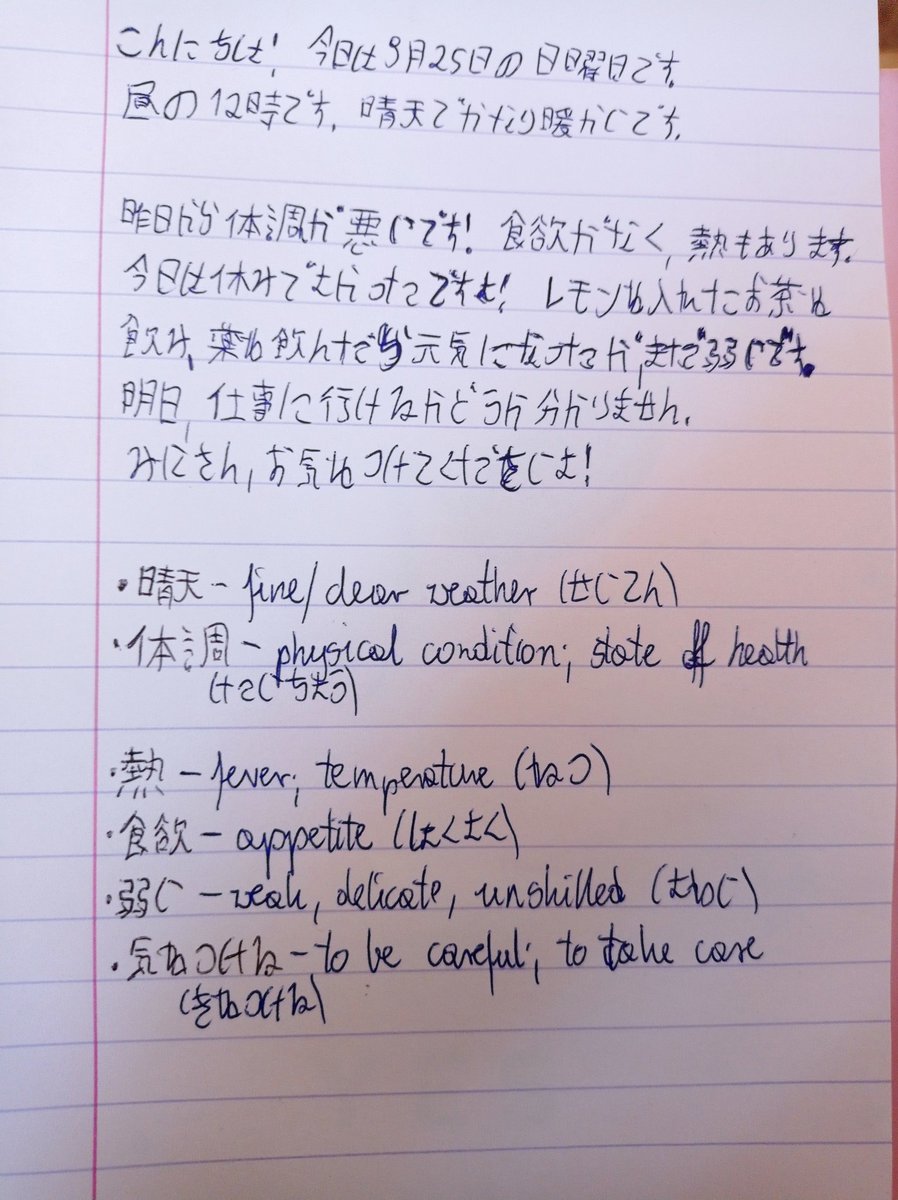 こんにちは! 今日は9月25日の日曜日です。
昼の12時です。晴天でかなり暖かいです。
昨日から体調が悪いです! 食欲がなく、熱もあります。
今日は休みでよかったです! レモンを入れたお茶を
飲み、薬を飲んだら元気になったが、まだ弱いです。
明日、仕事に行けるかどうか分かりません。
みなさん、お気をつけてくださいよ!
・晴天 – fine/clear weather (せいてん)
・体調 – physical condition; state of health
(たいちょう)
・熱 – fever; temperature (ねつ)
・食欲 – appetite (しょくよく)
・弱い – weak, delicate, unskilled (よわい)
・気をつける – to be careful; to take care
(きをつける)